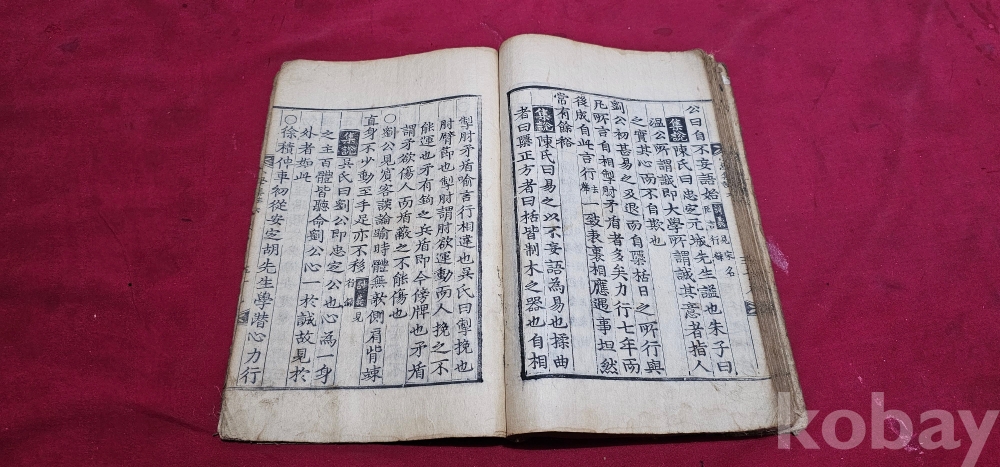 公曰自不妄語始
集說陳氏曰忠定元城先生謚也朱子曰
溫公所謂誠即大學所謂誠其意者指人
之實其心而不自欺也
劉公初甚易之及退而自櫽栝日之所行與
凡所言自相掣肘矛盾者多矣力行七年而
後成自此言行一致表裏相應遇事坦然
常有餘裕
集說陳氏曰易之以不妄語為易也揉曲
者曰櫽正方者曰栝皆制木之器也自相
掣肘矛盾喻言行相違也吳氏曰掣挽也
肘臂節也掣肘謂肘欲運動而人挽之不
能運也矛有鉤之兵盾即今傍牌也矛盾
謂矛欲傷人而盾蔽之不能傷也
○劉公見賓客談論踰時體無欹側肩背竦
直身不少動至手足亦不移行錄見
集說吳氏曰劉公即忠定公也心為一身
之主百體皆聽命劉公心一於誠故見於
外者如此
○徐積仲車初從安定胡先生學潛心力行
kobay